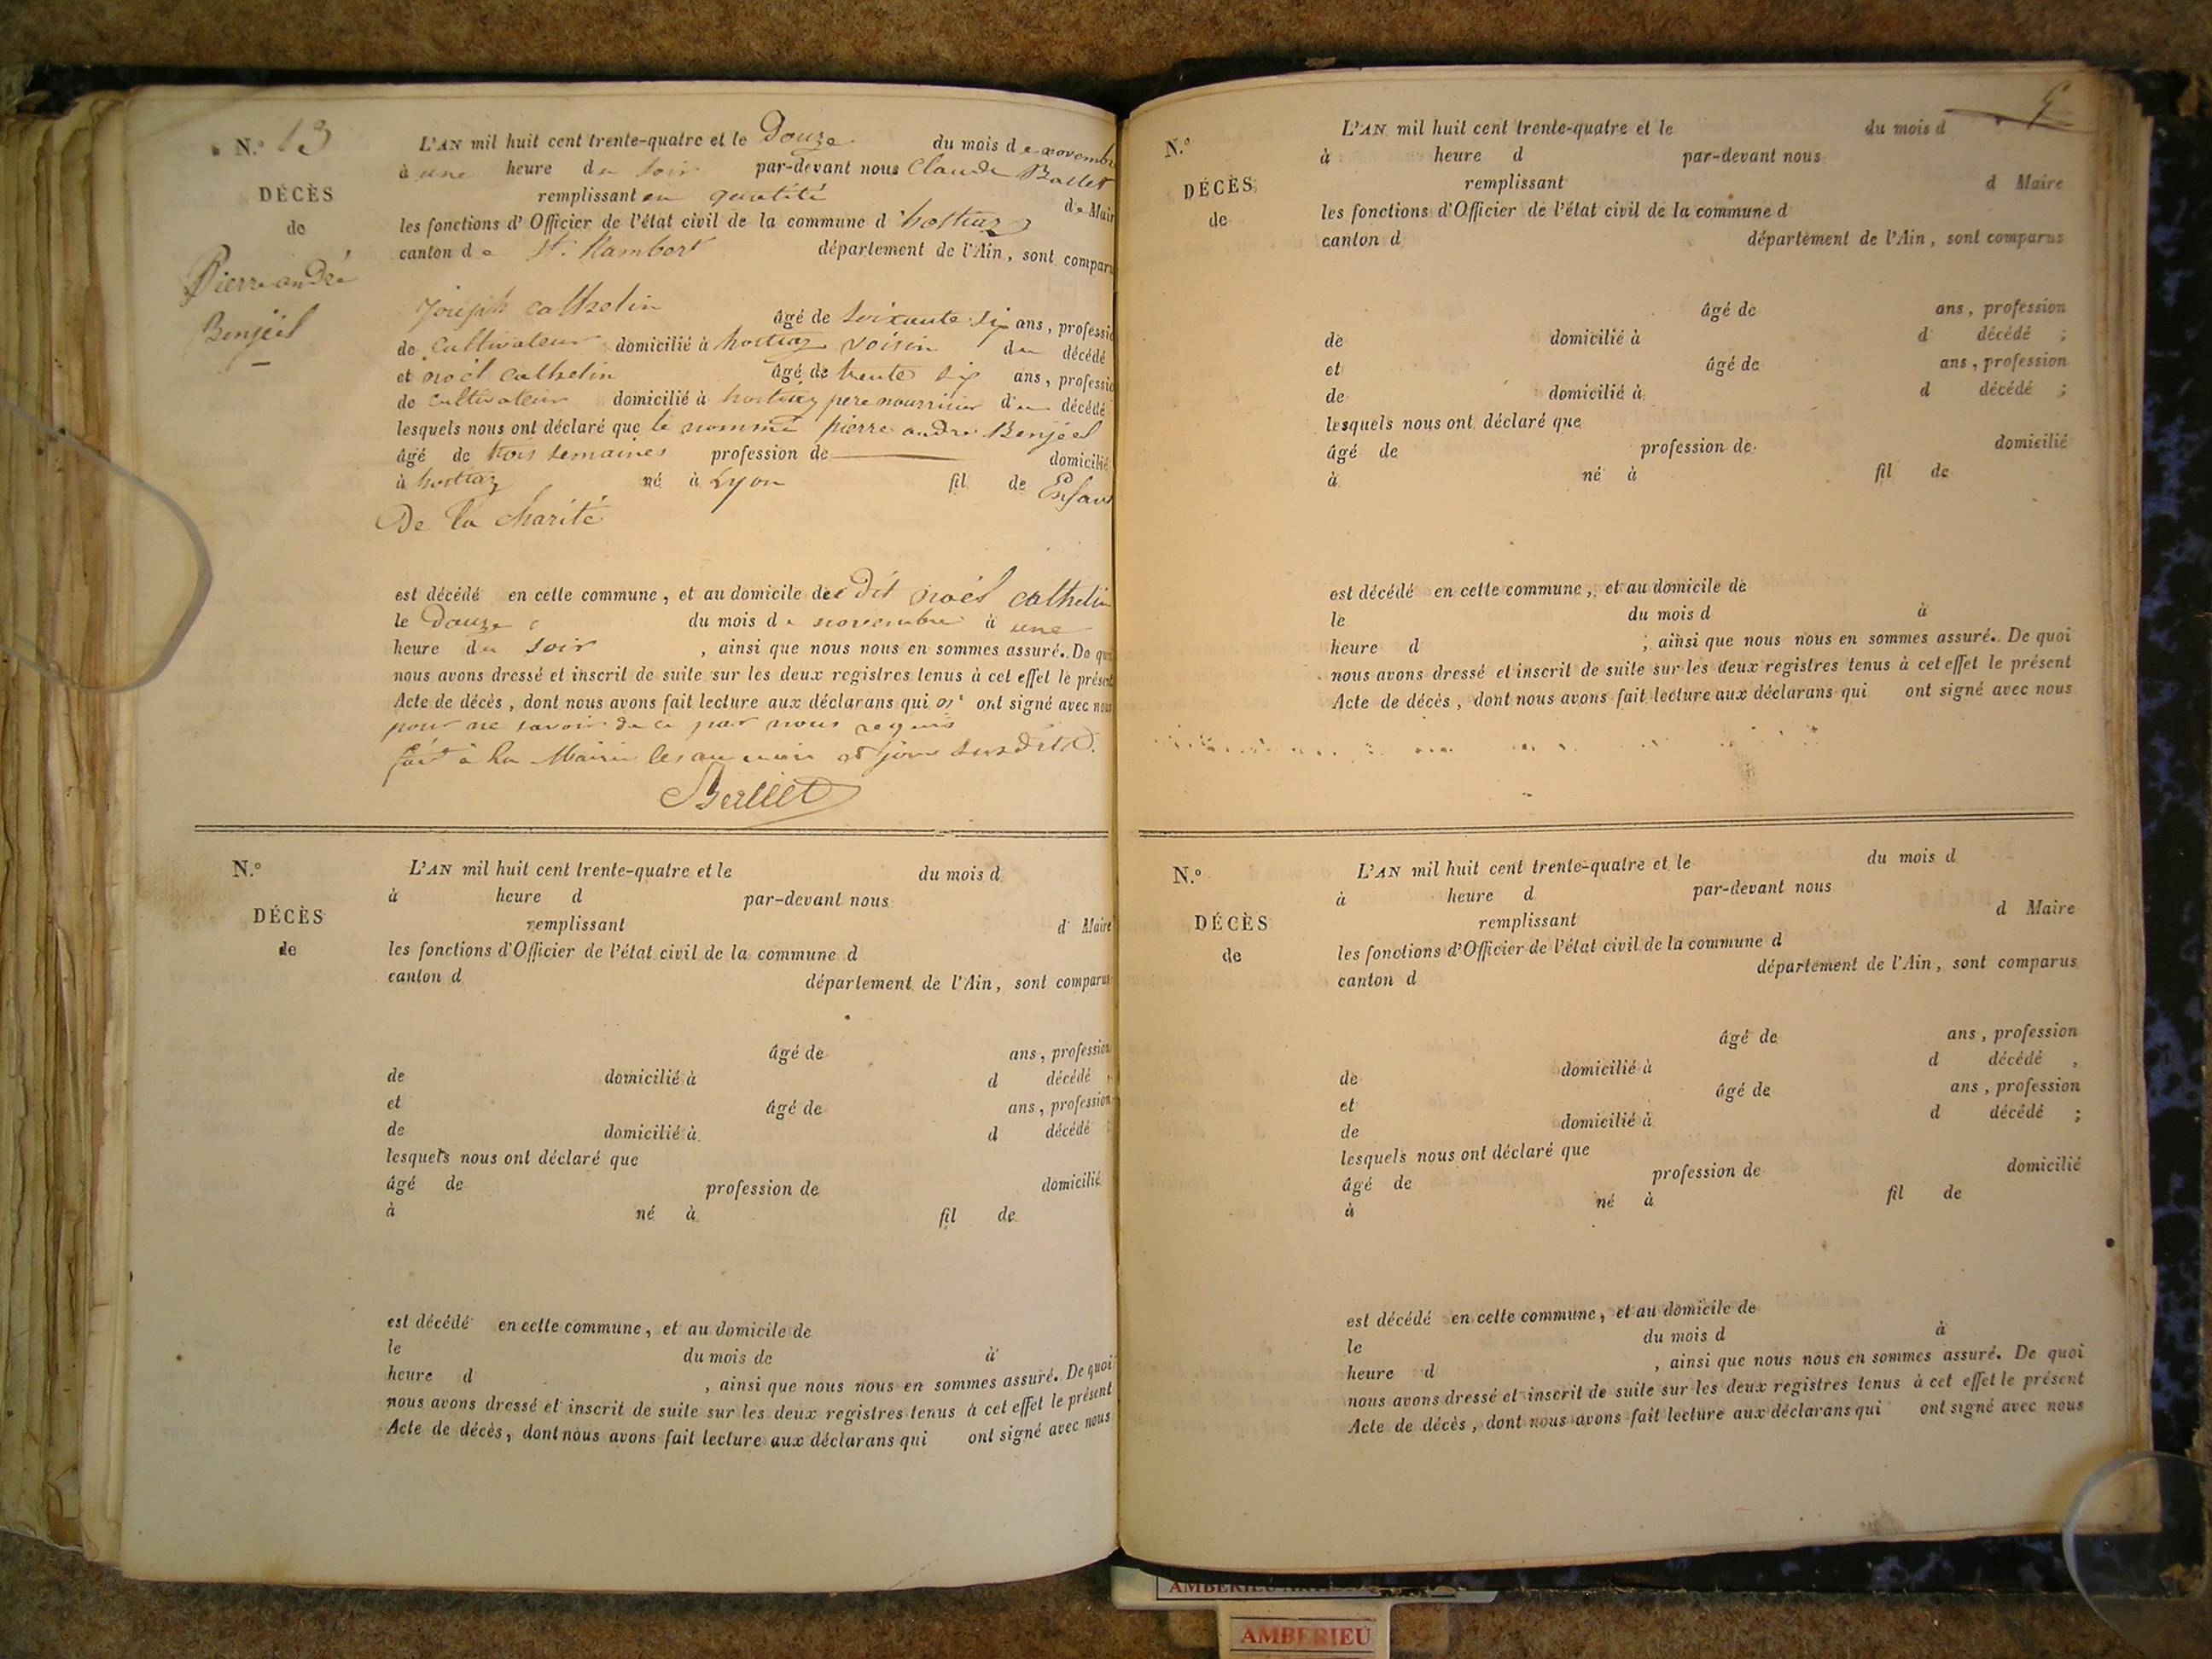 N.° 13
DÉCÈS
de
Pierre andré
Benjeil
L'AN mil huit cent trente-quatre et le Douze du mois de novembre
à une heure du soir par-devant nous Claude Ballet
remplissant en qualité de Mair
les fonctions d'Officier de l'état civil de la commune d'hostiaz
canton de St. Rambert département de l'Ain, sont comparu
Joseph cathelin âgé de soixante six ans, professio
de cultivateur domicilié à hostiaz voisin du décédé
et noël cathelin âgé de trente six ans, professio
de cultivateur domicilié à hostiaz pere nourricier du décédé
lesquels nous ont déclaré que le nommé pierre andré Benjeel
âgé de trois semaines profession de domicilié
à hostiaz né à Lyon fil de Enfant
De la charité
est décédé en cette commune, et au domicile de dit noël cathelin
le Douze du mois de novembre à une
heure du soir, ainsi que nous nous en sommes assuré. De quo
nous avons dressé et inscrit de suite sur les deux registres tenus à cet effet le présent
Acte de décès, dont nous avons fait lecture aux déclarans qui n' ont signé avec nous
pour ne savoir de ce par nous requis
fait à la Mairie les an mois et jour susdits.
Ballet
N.°
DÉCÈS
de
L'AN mil huit cent trente-quatre et le du mois d
à heure d par-devant nous
remplissant d Maire
les fonctions d'Officier de l'état civil de la commune d
canton d département de l'Ain, sont comparus
âgé de ans, profession
de domicilié à d décédé ,
et âgé de ans, profession
de domicilié à d décédé ;
lesquels nous ont déclaré que
âgé de profession de domicilié
à né à fil de
est décédé en cette commune, et au domicile de
le du mois de à
heure d , ainsi que nous nous en sommes assuré. De quoi
nous avons dressé et inscrit de suite sur les deux registres tenus à cet effet le présent
Acte de décès, dont nous avons fait lecture aux déclarans qui ont signé avec nous
N.°
DÉCÈS
de
L'AN mil huit cent trente-quatre et le du mois d
à heure d par-devant nous
remplissant d Maire
les fonctions d'Officier de l'état civil de la commune d
canton d département de l'Ain, sont comparus
âgé de ans, profession
de domicilié à d décédé ;
et âgé de ans, profession
de domicilié à d décédé ;
lesquels nous ont déclaré que
âgé de profession de domicilié
à né à fil de
est décédé en cette commune, et au domicile de
le du mois d à
heure d , ainsi que nous nous en sommes assuré. De quoi
nous avons dressé et inscrit de suite sur les deux registres tenus à cet effet le présent
Acte de décès, dont nous avons fait lecture aux déclarans qui ont signé avec nous
N.°
DÉCÈS
de
L'AN mil huit cent trente-quatre et le du mois d
à heure d par-devant nous
remplissant d Maire
les fonctions d'Officier de l'état civil de la commune d
canton d département de l'Ain, sont comparus
âgé de ans, profession
de domicilié à d décédé ,
et âgé de ans, profession
de domicilié à d décédé ;
lesquels nous ont déclaré que
âgé de profession de domicilié
à né à fil de
est décédé en cette commune, et au domicile de
le du mois d à
heure d , ainsi que nous nous en sommes assuré. De quoi
nous avons dressé et inscrit de suite sur les deux registres tenus à cet effet le présent
Acte de décès, dont nous avons fait lecture aux déclarans qui ont signé avec nous
AMBERIEU
AMBERIEU